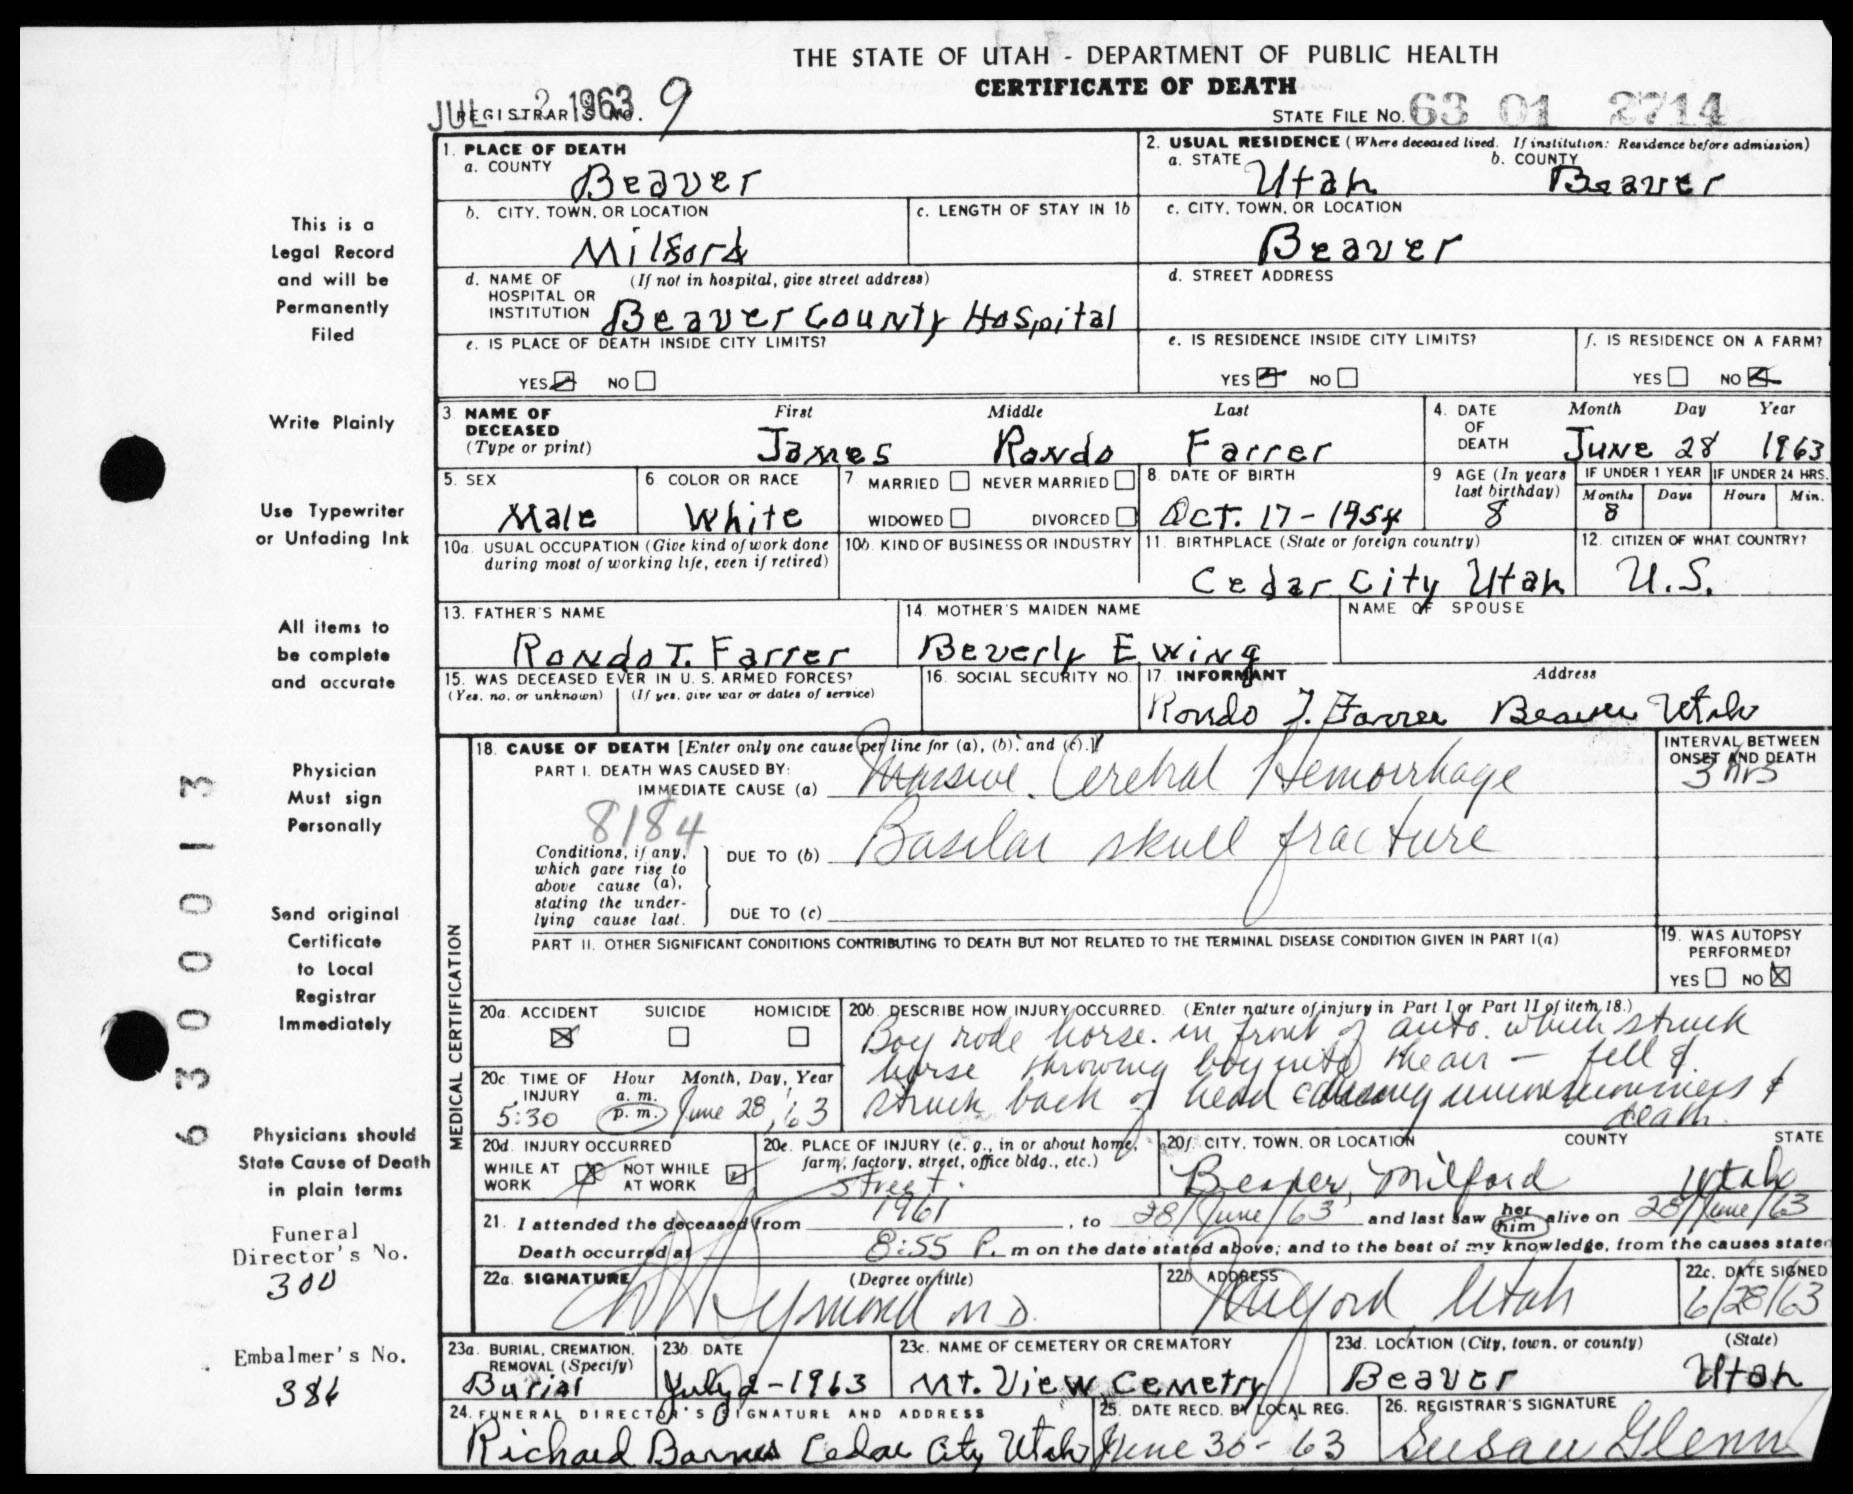 THE STATE OF UTAH - DEPARTMENT OF PUBLIC HEALTH
CERTIFICATE OF DEATH
JUL 2 1963
REGISTRAR'S NO. 9
STATE FILE NO. 63 01 2714
1. PLACE OF DEATH
a. COUNTY Beaver
2. USUAL RESIDENCE (Where deceased lived. If institution: Residence before admission)
a. STATE Utah b. COUNTY Beaver
b. CITY, TOWN, OR LOCATION Milford
c. LENGTH OF STAY IN 1b
c. CITY, TOWN, OR LOCATION Beaver
d. NAME OF HOSPITAL OR INSTITUTION (If not in hospital, give street address) Beaver County Hospital
d. STREET ADDRESS
e. IS PLACE OF DEATH INSIDE CITY LIMITS?
YES NO
e. IS RESIDENCE INSIDE CITY LIMITS?
YES NO
f. IS RESIDENCE ON A FARM?
YES NO
3 NAME OF DECEASED (Type or print)
First Middle Last
James Rondo Farrer
4. DATE OF DEATH Month Day Year
June 28 1963
5. SEX Male
6 COLOR OR RACE White
7 MARRIED NEVER MARRIED
WIDOWED DIVORCED
8 DATE OF BIRTH Oct. 17-1954
9 AGE (In years last birthday) 8
IF UNDER 1 YEAR Months Days 8
IF UNDER 24 HRS. Hours Min.
10a. USUAL OCCUPATION (Give kind of work done during most of working life, even if retired)
10b. KIND OF BUSINESS OR INDUSTRY
11. BIRTHPLACE (State or foreign country) Cedar City Utah
12. CITIZEN OF WHAT COUNTRY? U.S.
13. FATHER'S NAME Rondo T. Farrer
14. MOTHER'S MAIDEN NAME Beverly Ewing
NAME OF SPOUSE
15. WAS DECEASED EVER IN U. S. ARMED FORCES?
(Yes, no, or unknown) (If yes, give war or dates of service)
16. SOCIAL SECURITY NO.
17. INFORMANT Address
Rondo T. Farrer Beaver Utah
MEDICAL CERTIFICATION
18. CAUSE OF DEATH [Enter only one cause per line for (a), (b), and (c).]
PART I. DEATH WAS CAUSED BY:
IMMEDIATE CAUSE (a) Massive Cerebral Hemorrhage
INTERVAL BETWEEN ONSET AND DEATH
3 hrs
8184
Conditions, if any, which gave rise to above cause (a), stating the underlying cause last.
DUE TO (b) Basilar skull fracture
DUE TO (c)
PART II. OTHER SIGNIFICANT CONDITIONS CONTRIBUTING TO DEATH BUT NOT RELATED TO THE TERMINAL DISEASE CONDITION GIVEN IN PART I(a)
19. WAS AUTOPSY PERFORMED?
YES NO
20a. ACCIDENT SUICIDE HOMICIDE
20b. DESCRIBE HOW INJURY OCCURRED. (Enter nature of injury in Part I or Part II of item 18.)
Boy rode horse in front of auto which struck
horse throwing boy into the air - fell &
struck back of head causing unconsciousness &
death.
20c. TIME OF INJURY Hour Month, Day, Year
a. m.
5:30 p. m. June 28, 63
20d. INJURY OCCURRED
WHILE AT WORK NOT WHILE AT WORK
20e. PLACE OF INJURY (e. g., in or about home, farm, factory, street, office bldg., etc.)
street.
20f. CITY, TOWN, OR LOCATION COUNTY STATE
Beaver, Milford Utah
21. I attended the deceased from 1961, to 28/June/63 and last saw her him alive on 28/June/63
Death occurred at 8:55 P. m on the date stated above; and to the best of my knowledge, from the causes stated
22a. SIGNATURE (Degree or title)
M.D.
22b. ADDRESS Milford Utah
22c. DATE SIGNED 6/28/63
23a. BURIAL, CREMATION, REMOVAL (Specify) Burial
23b. DATE July 2-1963
23c. NAME OF CEMETERY OR CREMATORY Mt. View Cemetry
23d. LOCATION (City, town, or county) (State)
Beaver Utah
24. FUNERAL DIRECTOR'S SIGNATURE AND ADDRESS
Richard Barnes Cedar City Utah
25. DATE RECD. BY LOCAL REG. June 30-63
26. REGISTRAR'S SIGNATURE Susan Glenn
This is a
Legal Record
and will be
Permanently
Filed
Write Plainly
Use Typewriter
or Unfading Ink
All items to
be complete
and accurate
Physician
Must sign
Personally
Send original
Certificate
to Local
Registrar
Immediately
Physicians should
State Cause of Death
in plain terms
Funeral
Director's No.
300
Embalmer's No.
386
6300013